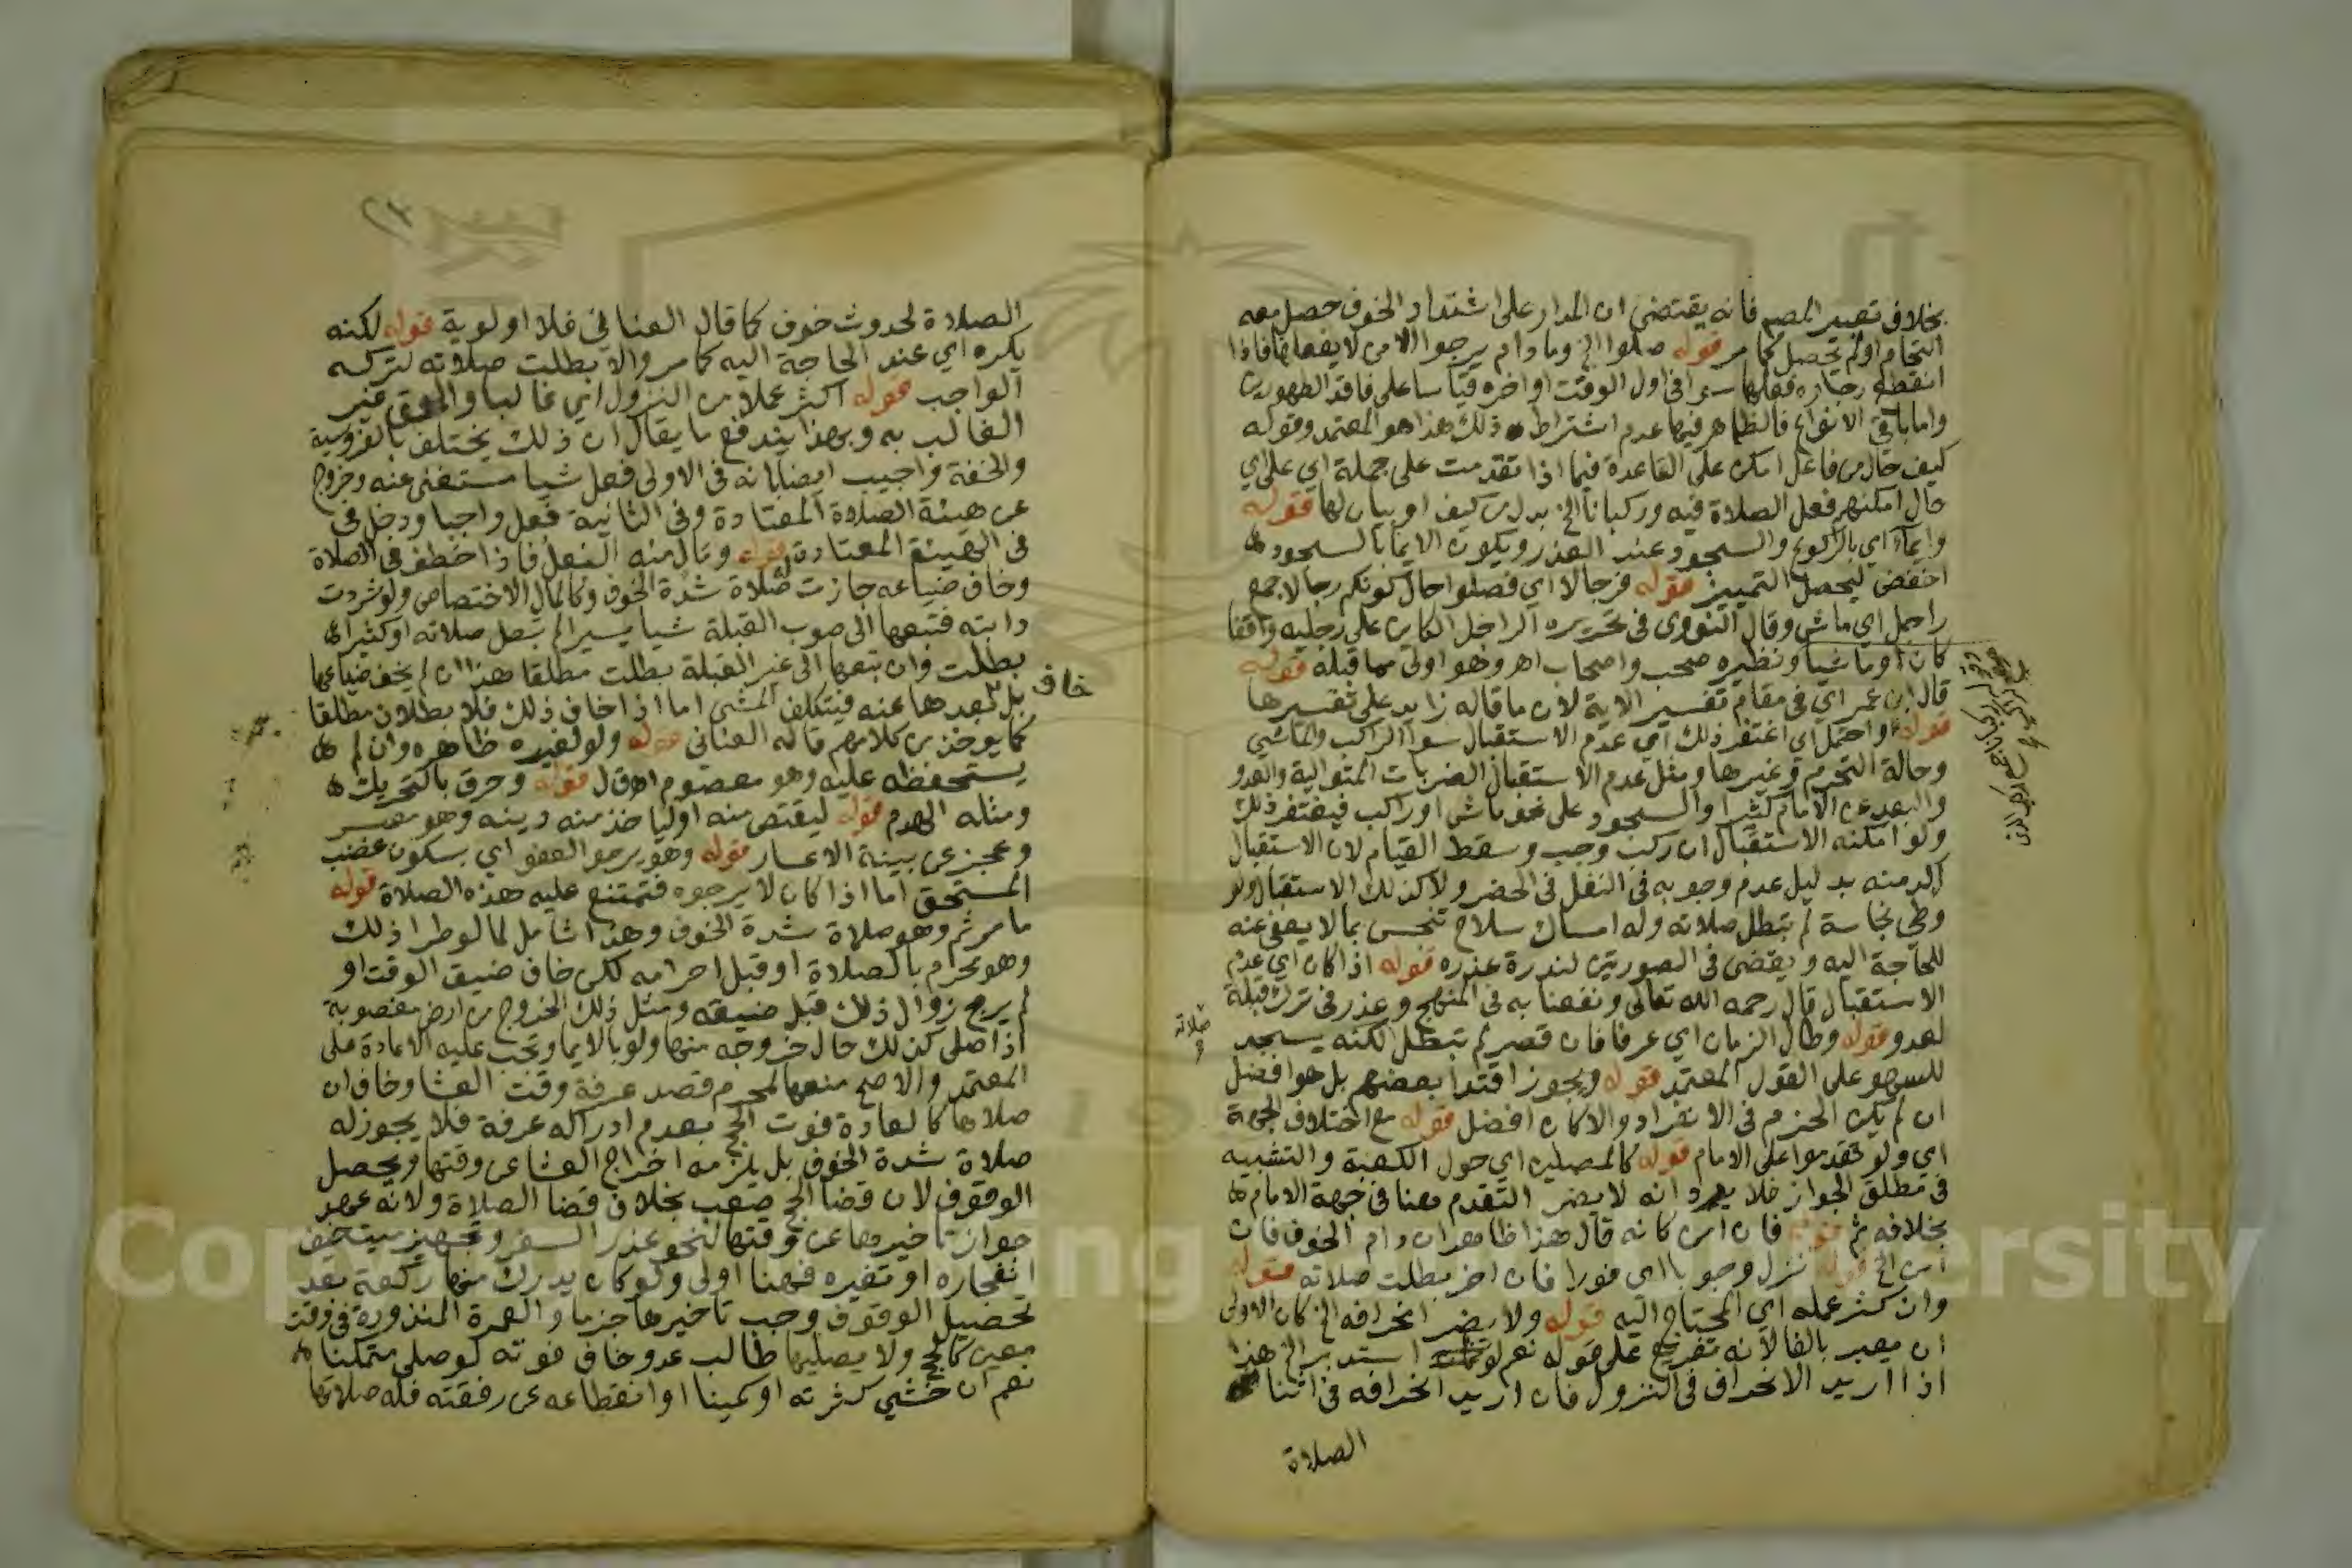 بخلاف تعبير المصم فانه يقتضي ان المدار على اشتداد الخوف حصل معه
التحام او لم يحصل كما مر قوله صلوا الخ وما دام يرجوا الامن لا يفعلها فاذا
انقطع رجاوه فعلها سوا في اول الوقت او اخره قياسا على فاقد الطهورين
واما باقي الانواع فالظاهر فيها عدم اشتراط ذلك هذا هو المعتمد وقوله
كيف حال من فاعل امكن على القاعدة فيما اذا تقدمت على جملة اي على اي
حال امكنهم فعل الصلاة فيه وركبانا الخ بدل من كيف او بيان لها قوله
وايماء اي بالركوع والسجود عند العذر ويكون الايما بالسجود
اخفض ليحصل التمييز قوله فرجالا اي فصلوا حال كونكم رجالا جمع
راجل اي ماش وقال النووي في تحريره الراجل الكاين على رجليه واقفا
كان او ماشيا ونظيره صحب واصحاب اهـ وهو اولى مما قبله قوله
قال ابن عمر اي في مقام تفسير الاية لان ما قاله زايد على تفسيرها
قوله واحتمل اي اغتفر ذلك اي عدم الاستقبال سوا الراكب والماشي
وحالة التحرم وغيرها ومثل عدم الاستقبال الضربات المتوالية والعدو
والبعد عن الامام كثيرا والسجود على نحو ماش او راكب فيغتفر ذلك
ولو امكنه الاستقبال ان ركب وجب وسقط القيام لان الاستقبال
اكد منه بدليل عدم وجوبه في النفل في الحضر ولا كذلك الاستقبال ولو
وطى نجاسة لم تبطل صلاته وله امساك سلاح تنجس بما لا يعفى عنه
للحاجة اليه ويقضى في الصورتين لندرة عذره قوله اذا كان اي عدم
الاستقبال قال رحمه الله تعالى ونفعنا به في المنهج وعذر في ترك قبلة
لعدو قوله وطال الزمان اي عرفا فان قصر لم تبطل لكنه يسجد
للسهو على القول المعتمد قوله ويجوز اقتدا بعضهم بل هو افضل
ان لم يكن الحزم في الانفراد والا كان افضل قوله مع اختلاف الجهة
اي ولو تقدموا على الامام قوله كالمصلين اي حول الكعبة والتشبيه
في مطلق الجواز فلا يرد انه لا يضر التقدم هنا في جهة الامام
بخلافه ثم قوله فان امن كانه قال هذا ظاهر ان دام الخوف فان
امن الخ قوله نزل وجوبا اي فورا فان اخر بطلت صلاته قوله
وان كثر عمله اي المحتاج اليه قوله ولا يضر انحرافه الخ كان الاولى
ان يعبر بالفا لانه تفريع على قوله نعم لو استدبر الخ هذا
اذا اريد الانحراف في النزول فان اريد انحرافه في اثنا
الصلاة
صلاته
الصلاة لحدوث خوف كما قال العناني فلا اولوية قوله لكنه
يكره اي عند الحاجة اليه كما مر والا بطلت صلاته لتركه
الواجب قوله اكثر عملا من النزول اي غالبا والحق غير
الغالب به وبهذا يندفع ما يقال ان ذلك يختلف بالفروسية
والخفة واجيب ايضا بانه في الاولى فعل شيا مستغنى عنه وخروج
عن هيئة الصلاة المعتادة وفي الثانية فعل واجبا ودخل في
في الهيئة المعتادة قوله ونال منه الفعل فاذا خطف في الصلاة
وخاف ضياعه جازت صلاة شدة الخوف وكالمال الاختصاص ولو شردت
دابته فتبعها الى صوب القبلة شيا يسيرا لم تبطل صلاته او كثيرا
بطلت وان تبعها الى غير القبلة بطلت مطلقا هذا ان لم يخف ضياعها
خاف
بل بعدها عنه فيتكلف المشي اما اذا خاف ذلك فلا بطلان مطلقا
كما يوخذ من كلامهم قاله العناني قوله ولو لغيره ظاهره وان لم
يستحفظه عليه وهو معصوم اهـ ق ل قوله وحرق بالتحريك
ومثله الهدم قوله ليقتص منه او لياخذ منه دينه وهو معسر
وعجز عن بينة الاعسار قوله وهو يرجو العفو اي بسكون غضب
المستحق اما اذا كان لا يرجوه فتمتنع عليه هذه الصلاة قوله
ما مر ثم وهو صلاة شدة الخوف وهذا شامل لما لو طرا ذلك
وهو محرم بالصلاة او قبل احرامه لكن خاف ضيق الوقت او
لم يرج زوال ذلك قبل ضيقه ومثل ذلك الخروج من ارض مغصوبة
اذا صلى كذلك حال خروجه منها ولو بالايما وتجب عليه الاعادة على
المعتمد والاصح منعها لمحرم قصد عرفة وقت العشا وخاف ان
صلاها كالعادة فوت الحج بعدم ادراكه عرفة فلا يجوز له
صلاة شدة الخوف بل يلزمه اخراج العشا عن وقتها ويحصل
الوقوف لان قضا الحج صعب بخلاف قضا الصلاة ولانه عهد
جواز تاخيرها عن وقتها لنحو عذر السفر وتجهيز ميت خيف
انفجاره او تغيره فهنا اولى ولو كان يدرك منها ركعة بعد
تحصيل الوقوف وجب تاخيرها جزما والعمرة المنذورة في وقت
معين كالحج ولا يصليها طالب عدو خاف فوته لو صلى متمكنا
نعم ان خشي كثرته او كمينا او انقطاعه عن رفقته فله صلاتها